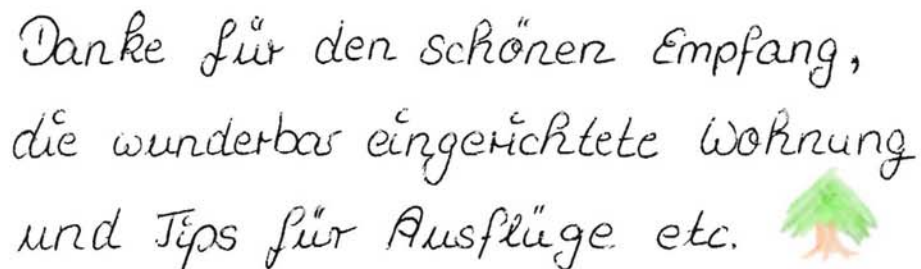 Danke für den schönen Empfang,
die wunderbar eingerichtete Wohnung
und Tips für Ausflüge etc.